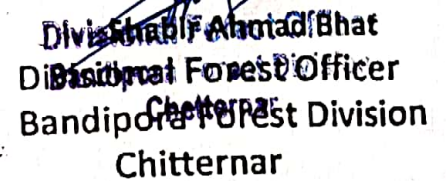 Shabir Ahmad Bhat
Divisional Forest Officer
Bandipora Forest Division
Chitternar